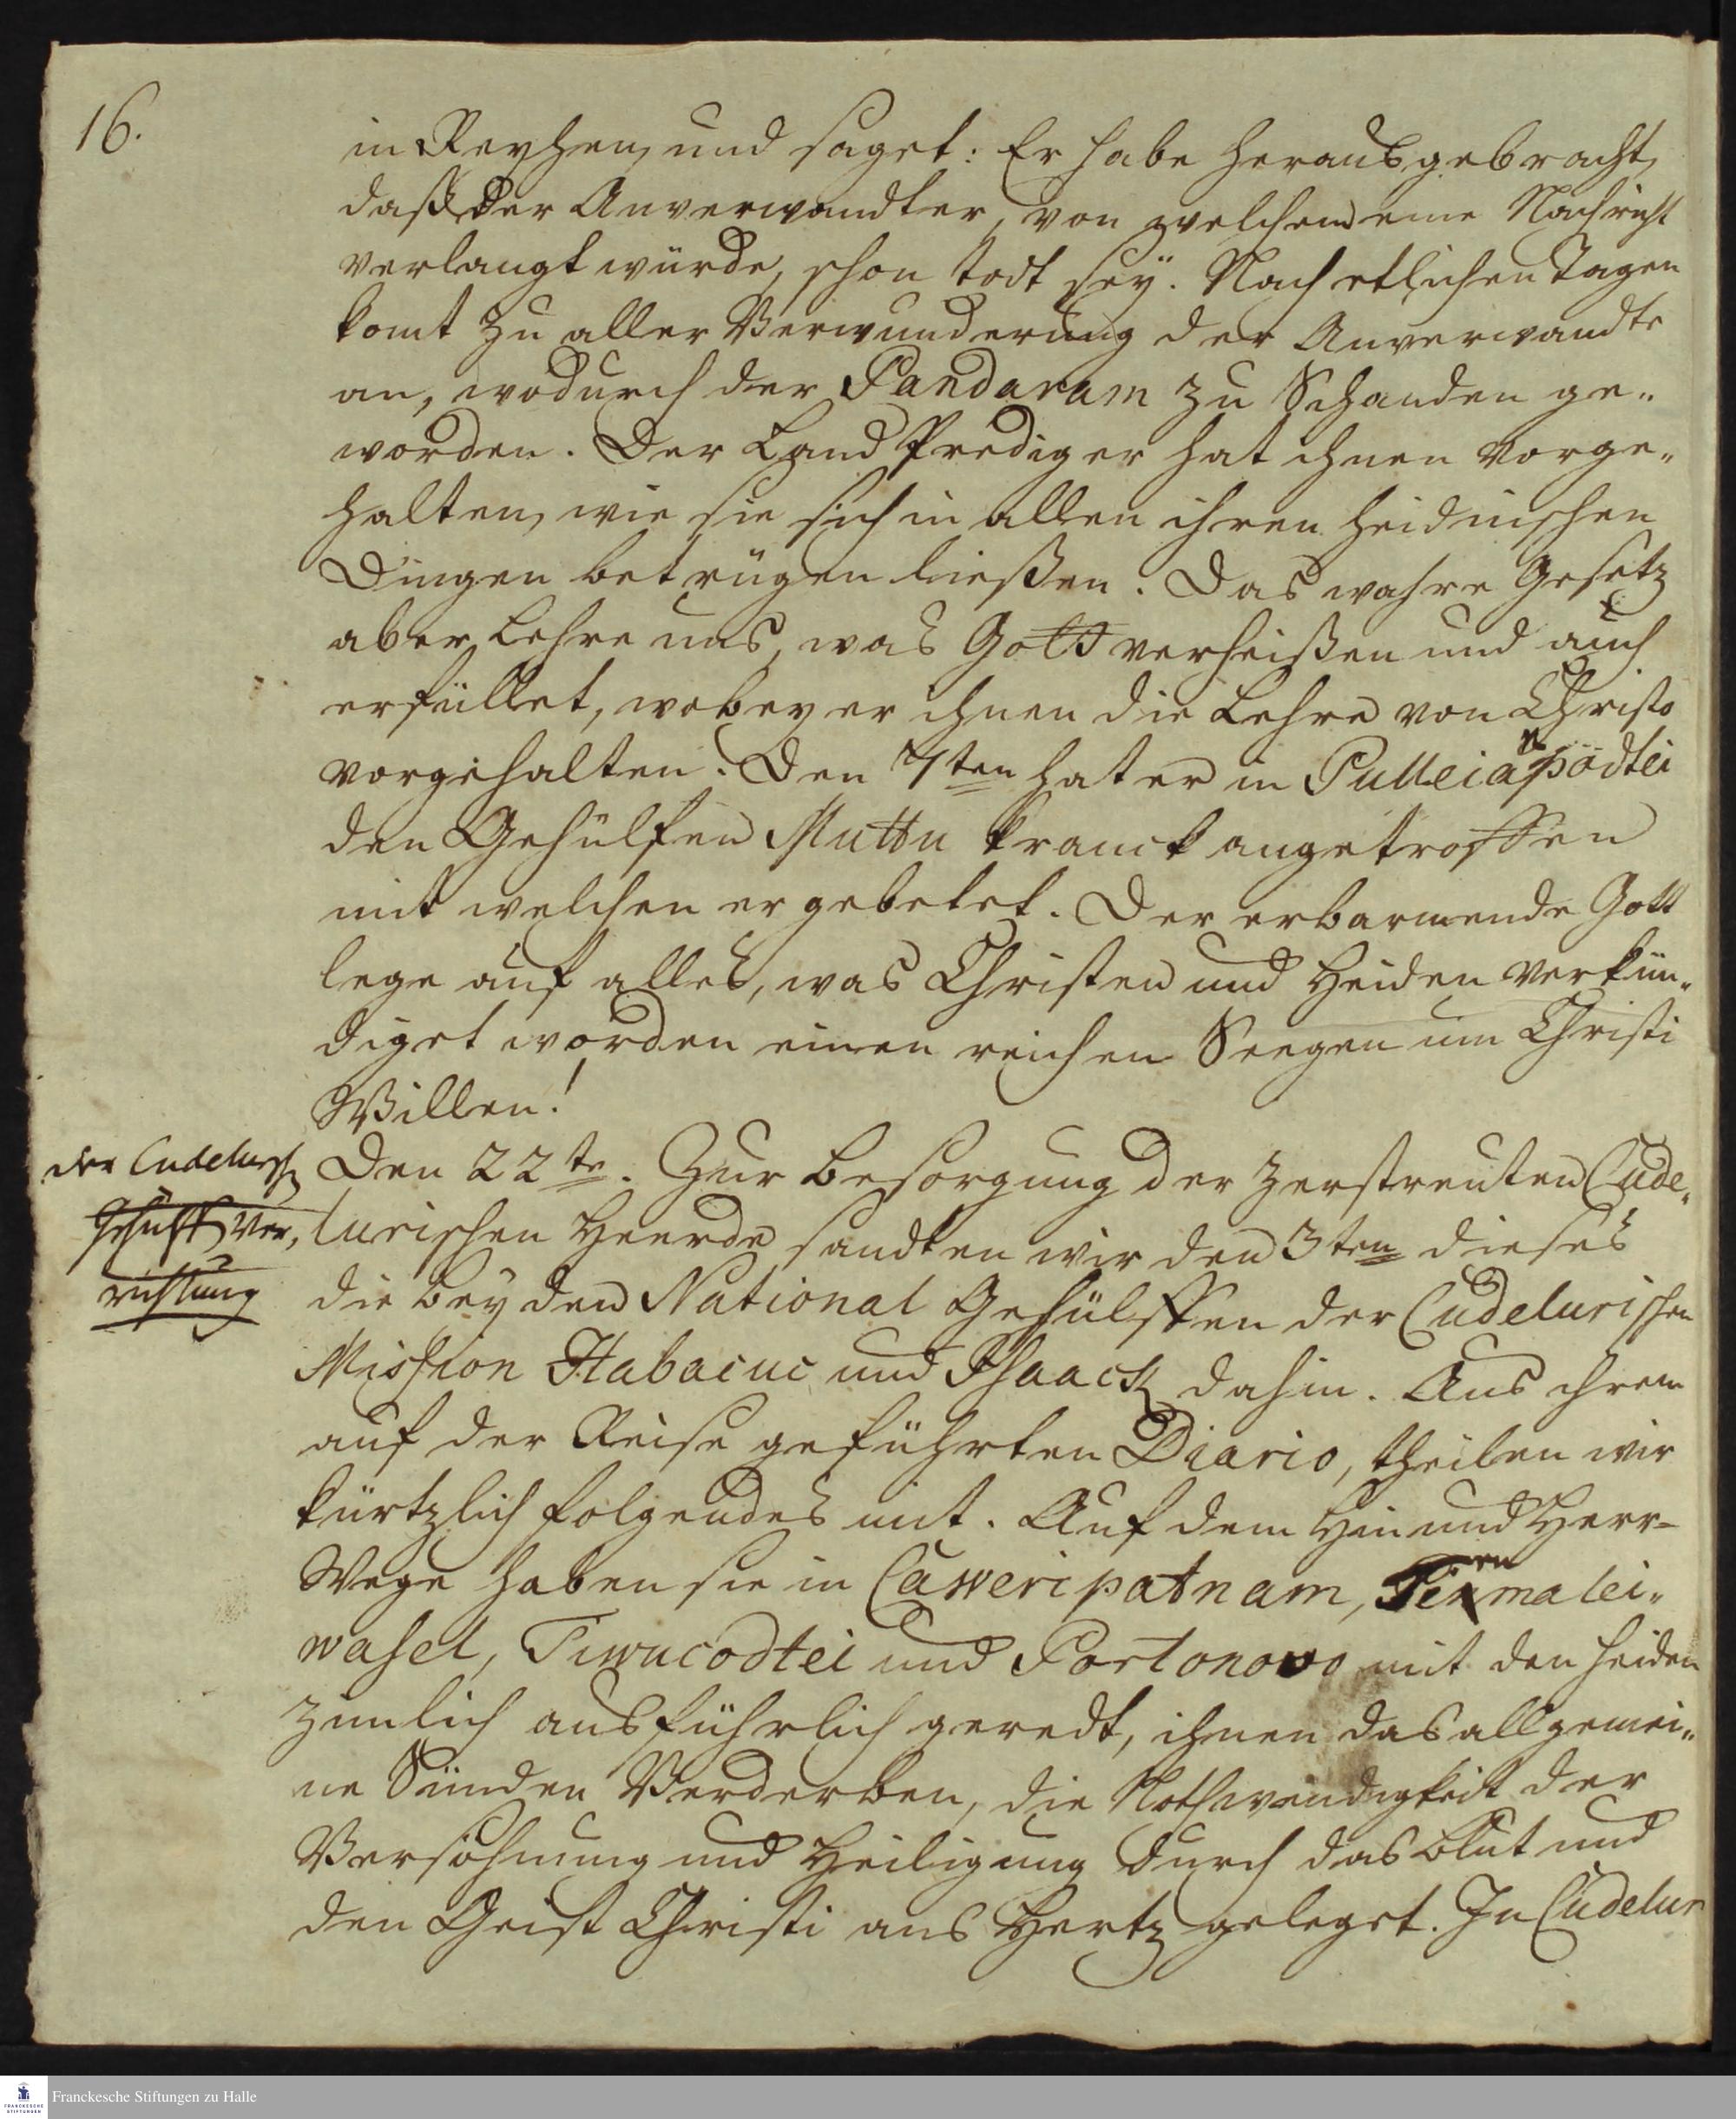 16.
in Reyhen, und saget: Er habe herausgebracht,
daß der Anverwandter, von welchem eine Nachricht
verlangt würde, schon todt sey. Nach etlichen Tagen
komt zu aller Verwunderung der Anverwandte
an, wodurch der Pandaram zu Schanden ge„
worden. Der Land Prediger hat ihnen vorge„
halten, wie sie sich in allen ihren heidnischen
Dingen betrügen ließen. Das wahre Gesetz
aber, lehre uns, was Gott verheißen und auch
erfüllet, wobey er ihnen die Lehre von Christo
vorgehalten. Den 7ten hat er in Pulleiapödtei
den Gehülfen Muttu kranck angetroffen
mit welchen er gebetet. Der erbarmende Gott
lege auf alles, was Christen und Heiden verkün„
diget worden einen reichen Seegen um Christi
Willen!
der Cudelursch
Gehülff. Ver„
richtung
Den 22te. Zur Besorgung der zerstreuten Cude„
lurischen Heerde, sandten wir den 3ten dieses
die beyden National Gehülffen der Cudelurischen
Mission Habacuc und Isaack dahin. Aus ihrem
auf der Reise geführten Diario, theilen wir
kürtzlich folgendes mit. Auf dem Hin und Herr-
Wege haben sie in Caweripatnam, Tirumalei„
wasel, Tirucodtei und Portonovo mit den Heiden
zimlich ausführlich geredt, ihnen das allgemei„
ne Sünden Verderben, die Nothwendigkeit der
Versöhnung und Heiligung durch das Blut und
den Geist Christi ans Hertz geleget. In Cudelur
Franckesche Stiftungen zu Halle
FRANCKESCHE
STIFTUNGEN